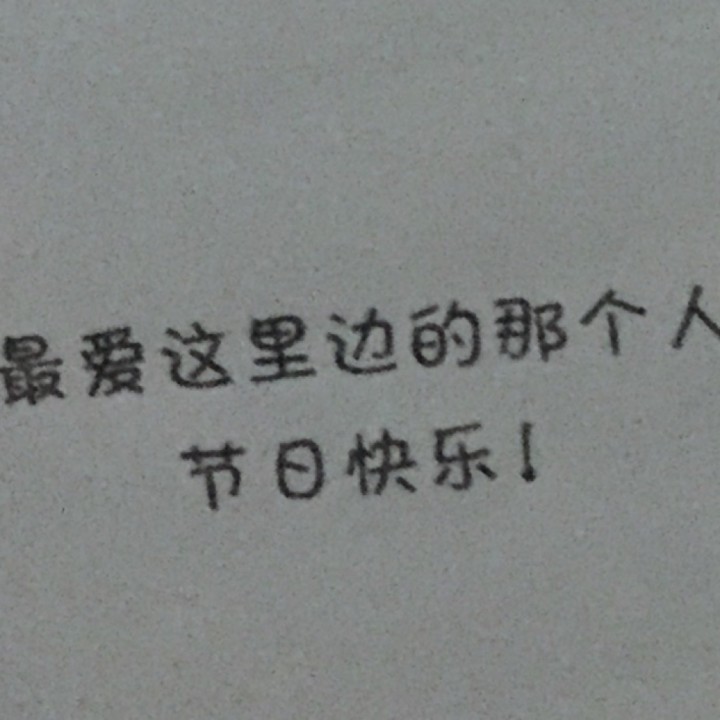 最爱这里边的那个人
节日快乐！